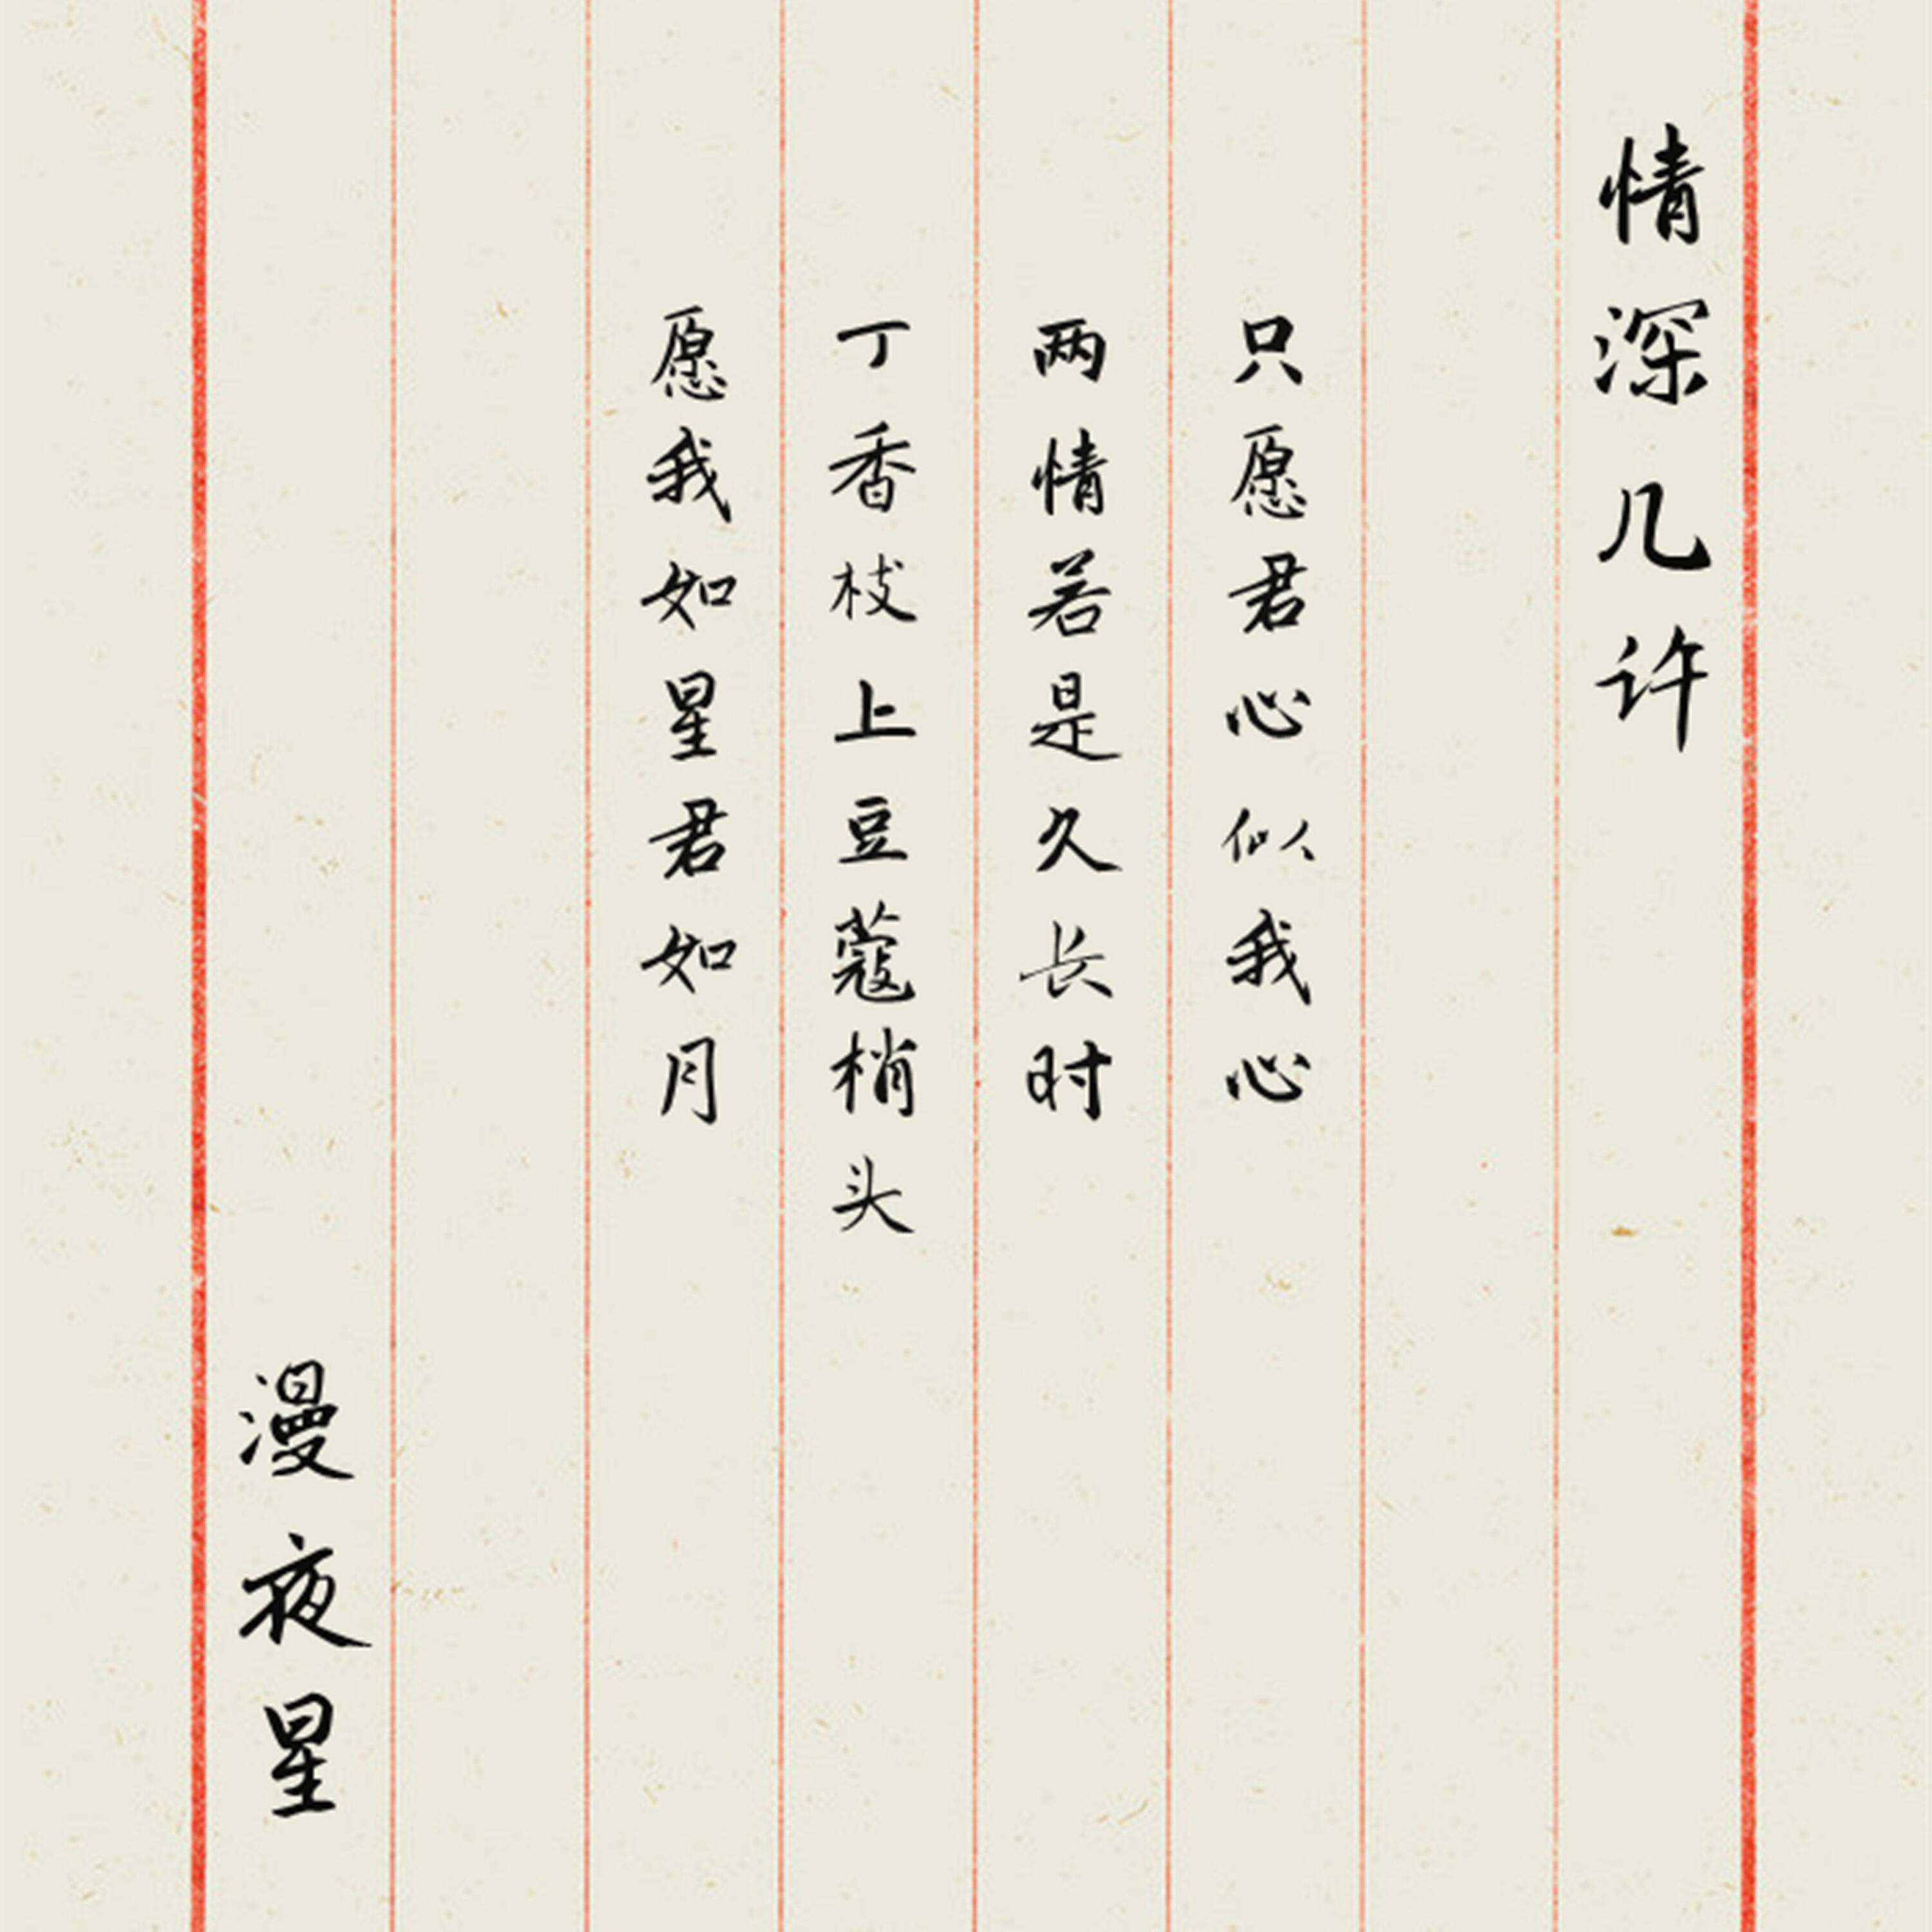 情深几许
只愿君心似我心
两情若是久长时
丁香枝上豆蔻梢头
愿我如星君如月
漫夜星